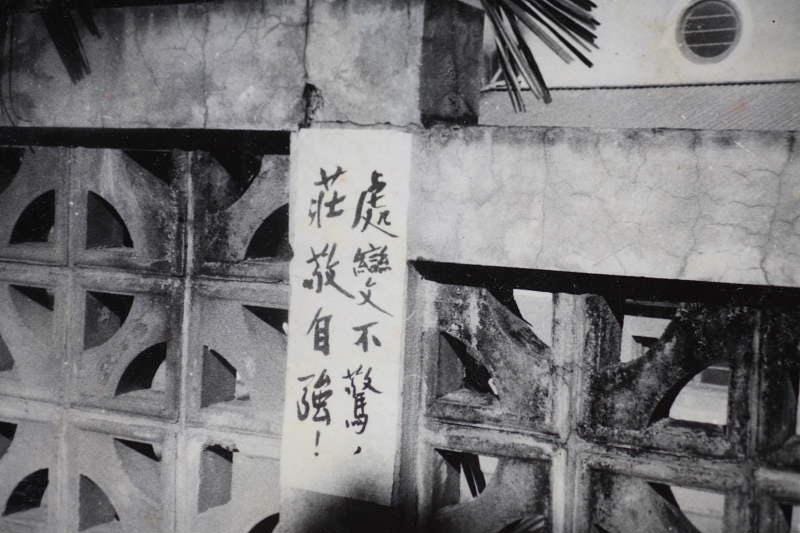 處變不驚，
莊敬自強！